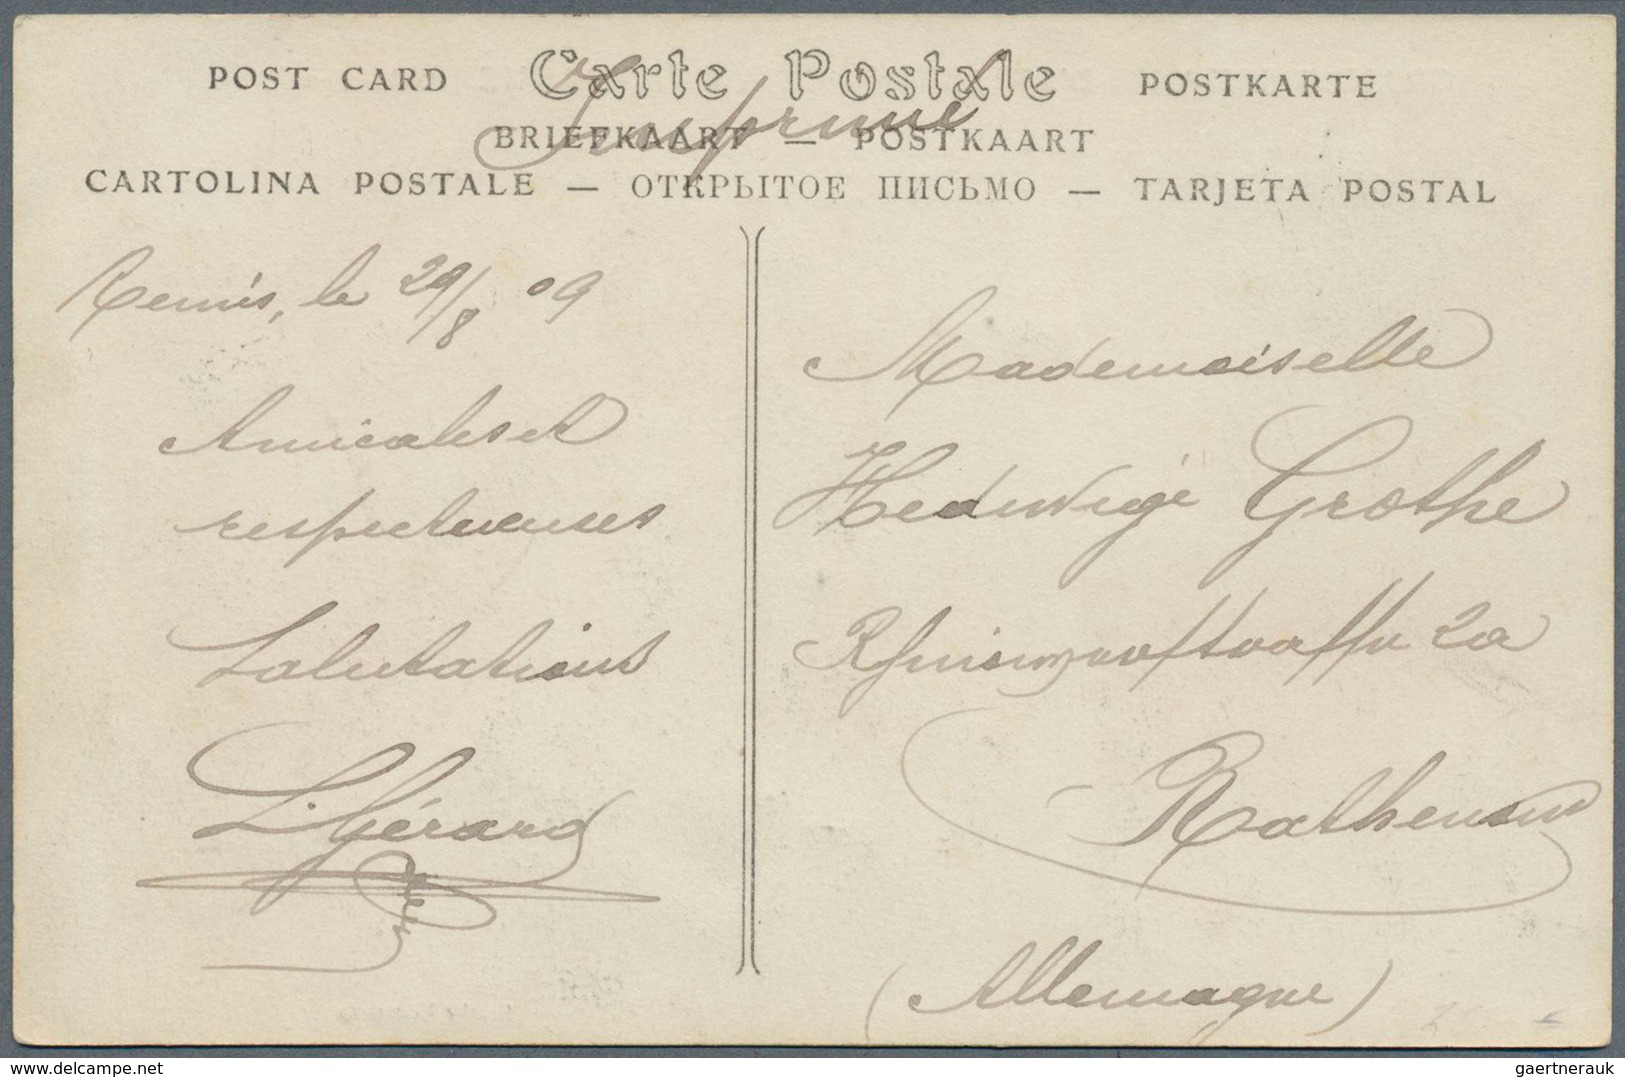 POST CARD Carte Postale POSTKARTE
Imprimé
BRIEFKAART — POSTKAART
CARTOLINA POSTALE — ОТКРЫТОЕ ПИСЬМО — TARJETA POSTAL
Reims, le 29/8 09
Amicales et
respectueuses
Salutations
L. Gérard
Mademoiselle
Hedwige Grothe
2a
Rathenow
(Allemagne)
delcampe.net
gaertnerauk